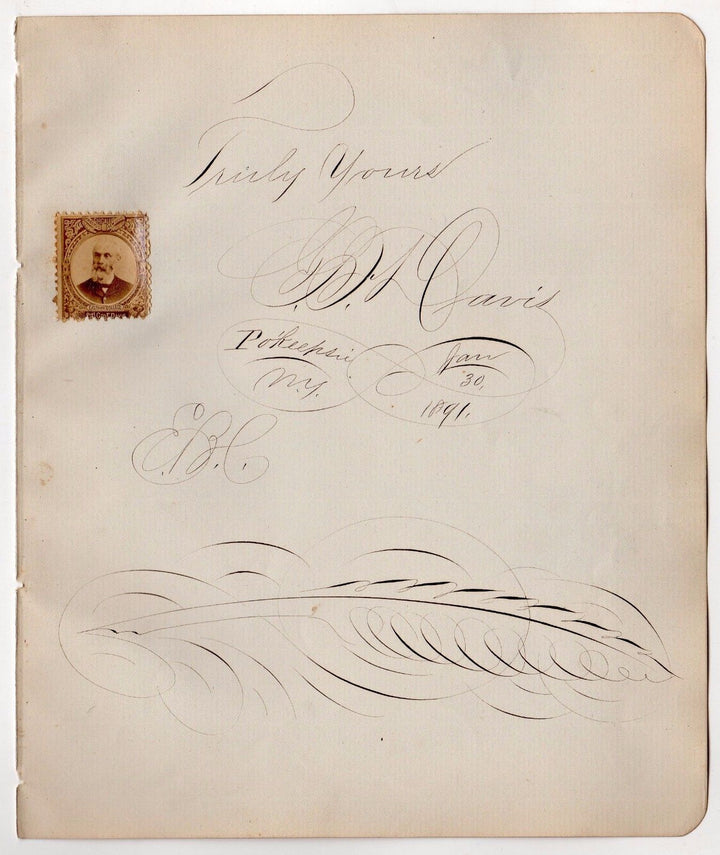 Truly Yours
Davis
Po'Keepsie
N.Y.
Jan
30,
1891.
E.B.C.